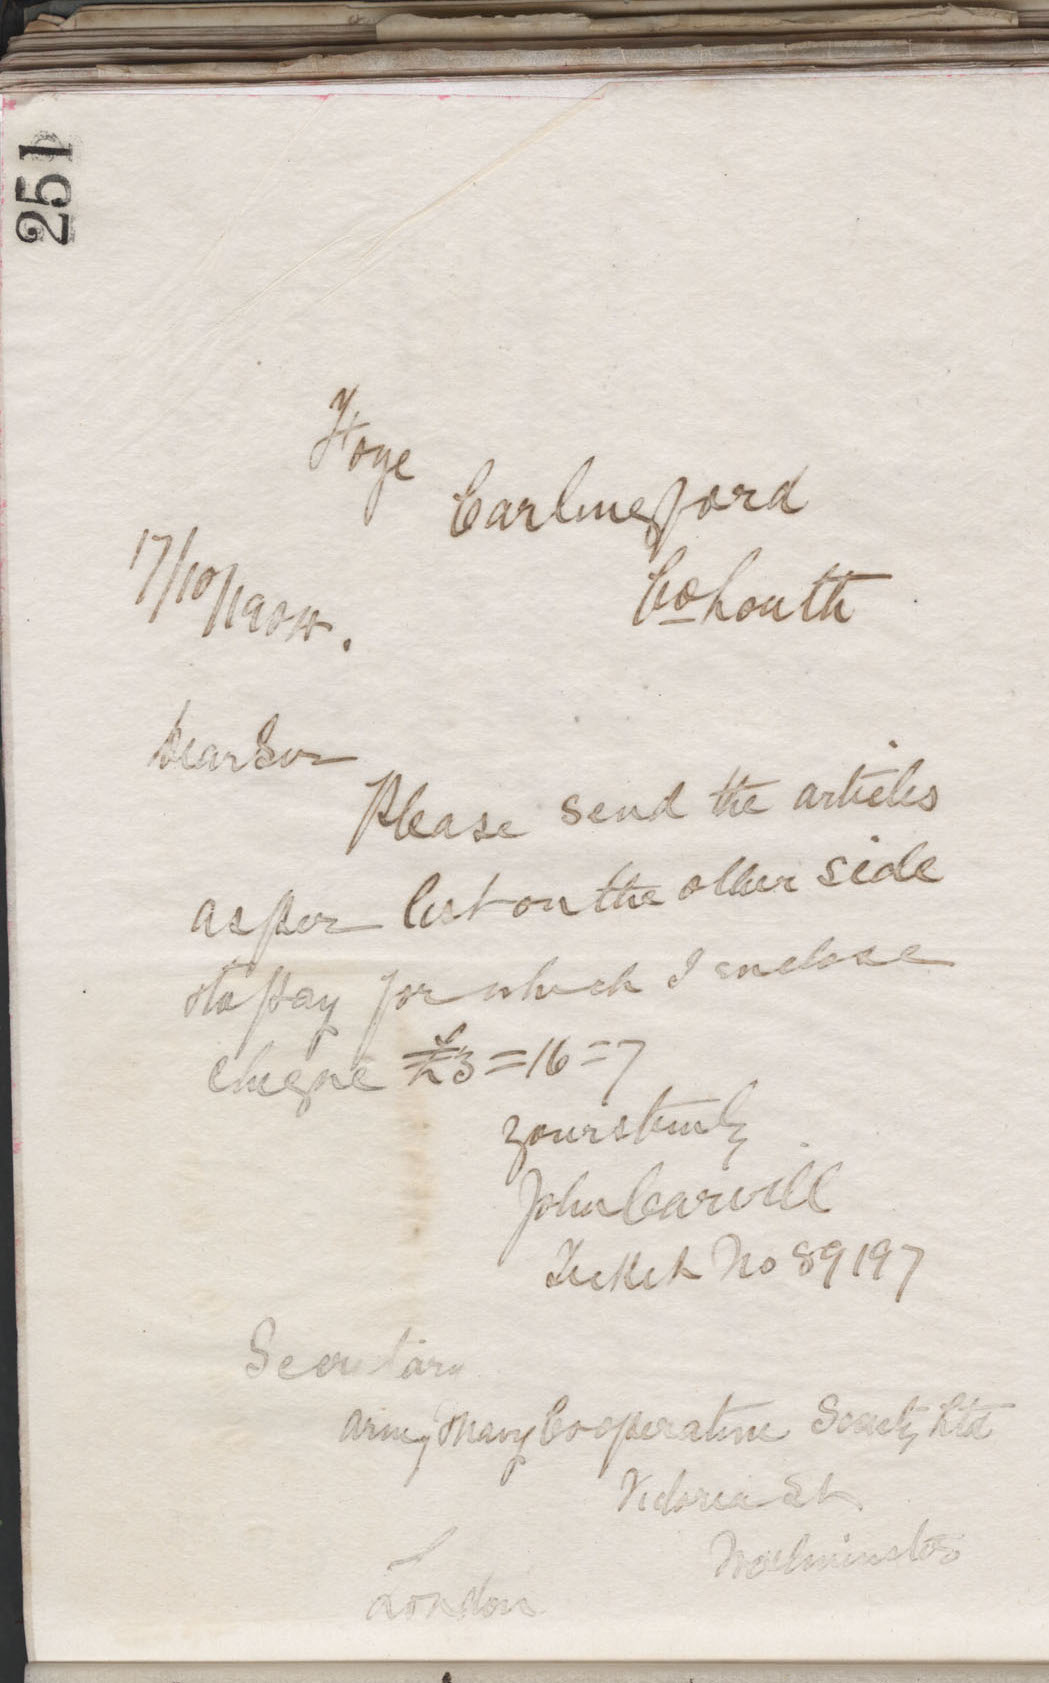 251
Foye
Carlingford
17/10/1904.
Co Louth
Dear Sir
Please send the articles
as per list on the other side
to pay for which I enclose
cheque £3=16=7
Yours truly
John Carvill
Ticket No 89197
Secretary
Army & Navy Cooperative Society Ltd
Victoria St.
Westminster
London